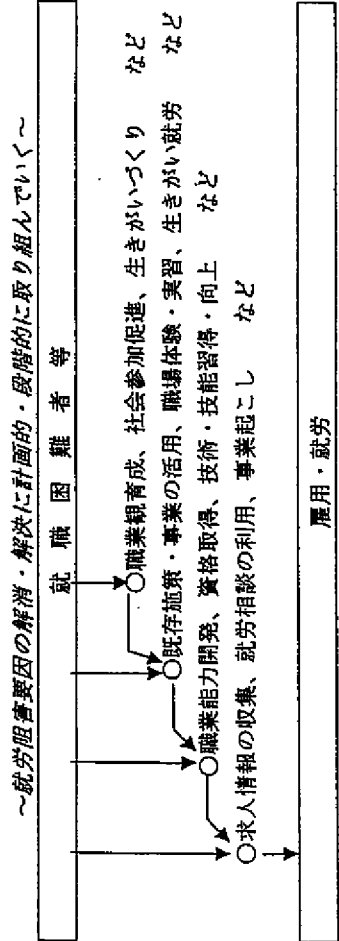 ～就労阻害要因の解消・解決に計画的・段階的に取り組んでいく～
就職困難者等
○職業観育成、社会参加促進、生きがいづくり　など
○既存施策・事業の活用、職場体験・実習、生きがい就労　など
○職業能力開発、資格取得、技術・技能習得・向上　など
○求人情報の収集、就労相談の利用、事業起こし　など
雇用・就労